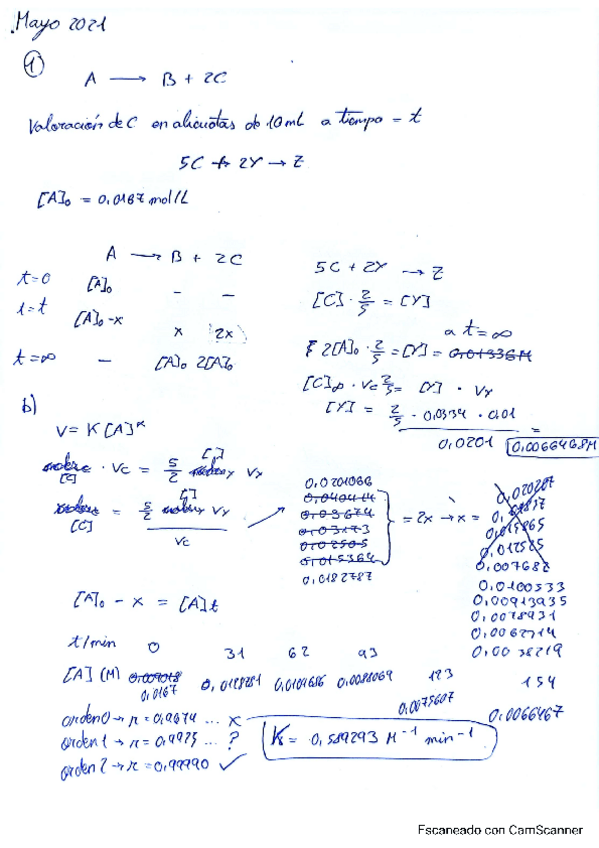 Mayo 2021
1)
A → B + 2C
Valoración de C en alicuotas de 10 mL a tiempo = t
5C + 2Y → Z
[A]₀ = 0,0167 mol/L
A → B + 2C
t=0 [A]₀ - -
t=t [A]₀-x x 2x
t=∞ - [A]₀ 2[A]₀
5C + 2Y → Z
[C] · 2/5 = [Y]
a t=∞
2[A]₀ · 2/5 = [Y] = 0,01336M
[C]∞ · Vc 2/5 = [Y] · Vy
[Y] = 2/5 · 0,0334 · 0,01 =
0,0201 0,0066468M
b)
V = K[A]^α
[C] · Vc = 5/2 [ ] Vy
[C] = 5/2 [ ] Vy
Vc
0,0201066
0,03674
0,03173
0,02505
0,015364
0,0182787
= 2x → x =
0,020207
0,015865
0,012525
0,007682
0,0100533
0,00913935
0,0078931
0,0038219
[A]₀ - x = [A]t
t/min 0 31 62 93 123 154
[A] (M) 0,0167
0,0066467
orden 0 → r = 0,9674 ... x
orden 1 → r = 0,9925 ... ?
orden 2 → r = 0,99990 ✓
K = 0,589293 M⁻¹ min⁻¹
Escaneado con CamScanner